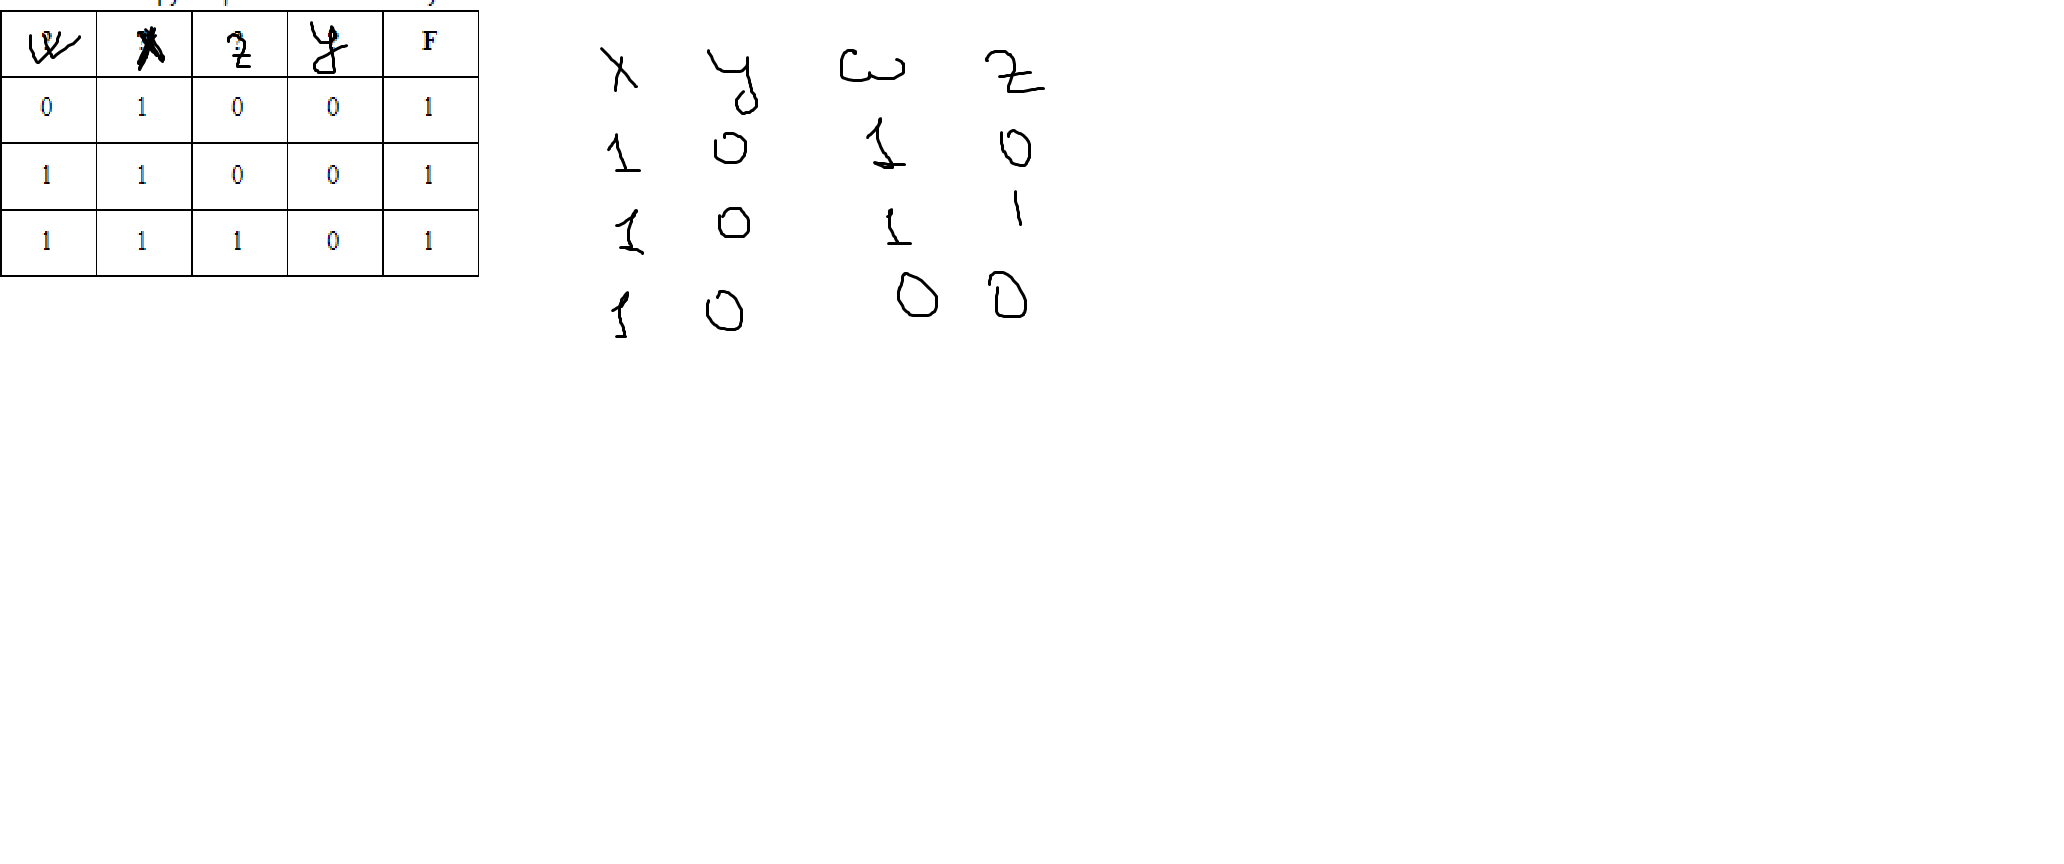 w x z y F
0 1 0 0 1
1 1 0 0 1
1 1 1 0 1
x y w z
1 0 1 0
1 0 1 1
1 0 0 0